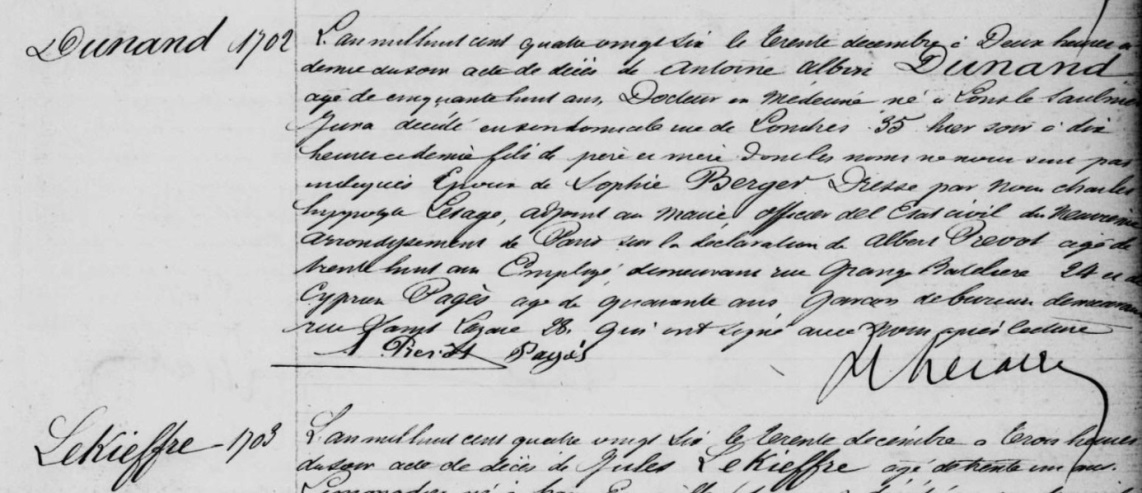 Dunand 1702
L'an mil huit cent quatre vingt six le trente decembre à Deux heures et
demie du soir acte de décès de Antoine Albin DUNAND
agé de cinquante huit ans, Docteur en médecine né à Lons le Saulnier
Jura décédé en son domicile rue de Londres 35 hier soir à dix
heures et demie fils de père et mère dont les noms ne nous sont pas
indiqués Epoux de Sophie Berger Dressé par nous Charles
hippolyte Lesage, adjoint au maire officier de l'Etat civil du neuvième
arrondissement de Paris sur la déclaration de Albert Prevot agé de
trente huit ans Employé demeurant rue Grange Batelière 24 et de
Cyprien Pagès agé de quarante ans Garçon de bureau demeurant
rue Saint Lazare 28 qui ont signé avec nous après lecture
A Prevot Pagès
LeKieffre 1703
L'an mil huit cent quatre vingt six le trente décembre à trois heures
du soir acte de décès de Jules LeKieffre agé de trente un ans.